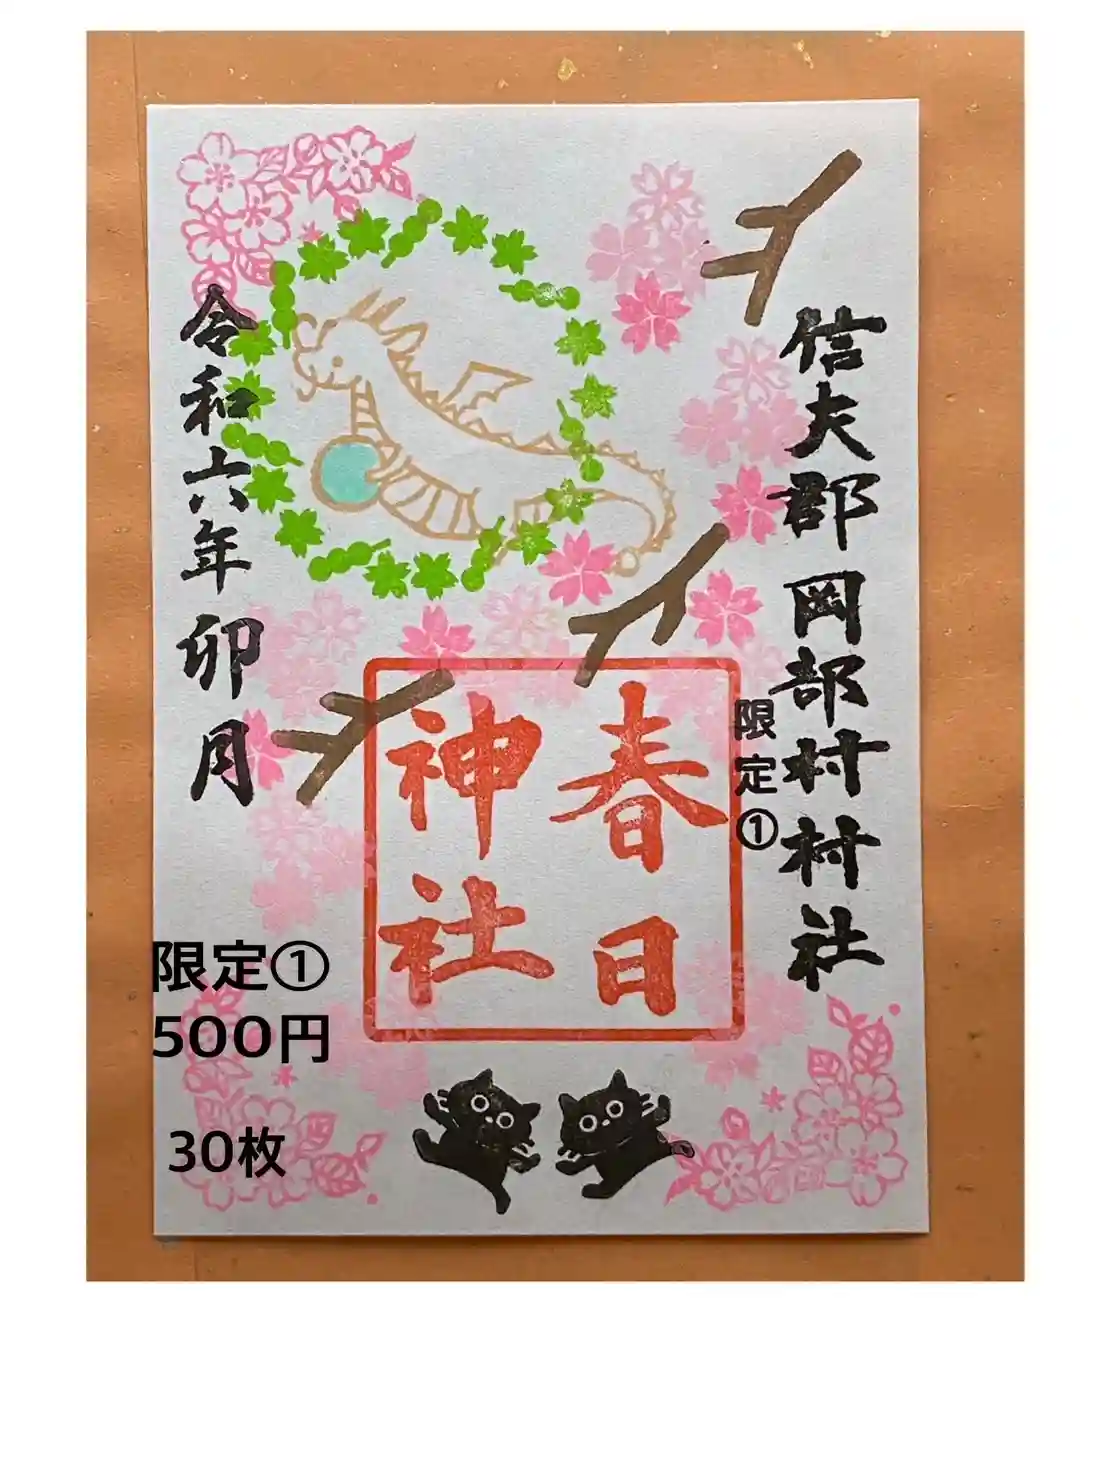 信夫郡岡部村村社
限定①
春日
神社
令和六年卯月
限定①
500円
30枚